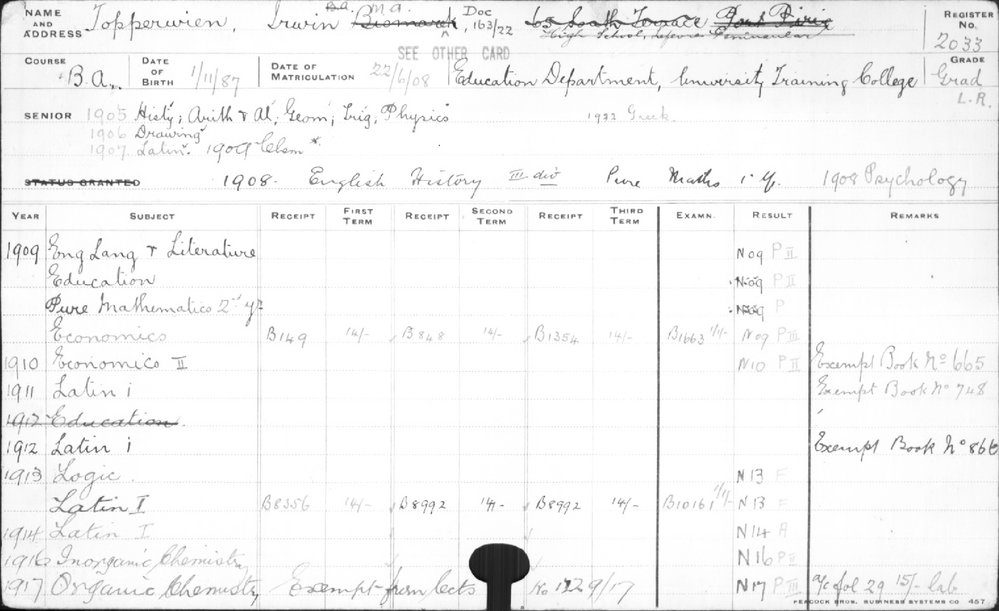 B.A. M.A.
NAME AND ADDRESS Topperwien, Irwin Bismarck, Doc 163/22 65 South Terrace Port Pirie REGISTER No. 2033
High School, Lefevre Peninsular
SEE OTHER CARD
COURSE B.A. DATE OF BIRTH 1/11/87 DATE OF MATRICULATION 22/6/08 Education Department, University Training College GRADE Grad
L.R.
SENIOR 1905 Histy; Arith & Al; Geom; Trig; Physics 1922 Greek
1906 Drawing
1907. Latin. 1909 Chem
STATUS GRANTED 1908. English History III div Pure Maths 1 y. 1908 Psychology
YEAR SUBJECT RECEIPT FIRST TERM RECEIPT SECOND TERM RECEIPT THIRD TERM EXAMN. RESULT REMARKS
1909 Eng Lang & Literature N09 P II
Education N09 P II
Pure Mathematics 2nd yr N09 P
Economics B149 14/- B848 14/- B1354 14/- B1663 N09 P III
1910 Economics II N10 P II Exempt Book No 665
1911 Latin i Exempt Book No 748
1912 Education
1912 Latin i Exempt Book No 866
1913 Logic. N13 F
Latin I B8356 14/- B8992 14/- B8992 14/- B10161 N13 F
1914 Latin I N14 A
1916 Inorganic Chemistry N16 P II
1917 Organic Chemistry Exempt from lects No 1129/17 N17 P III a/c fol 29 15/- lab
PEACOCK BROS. BUSINESS SYSTEMS CO 457